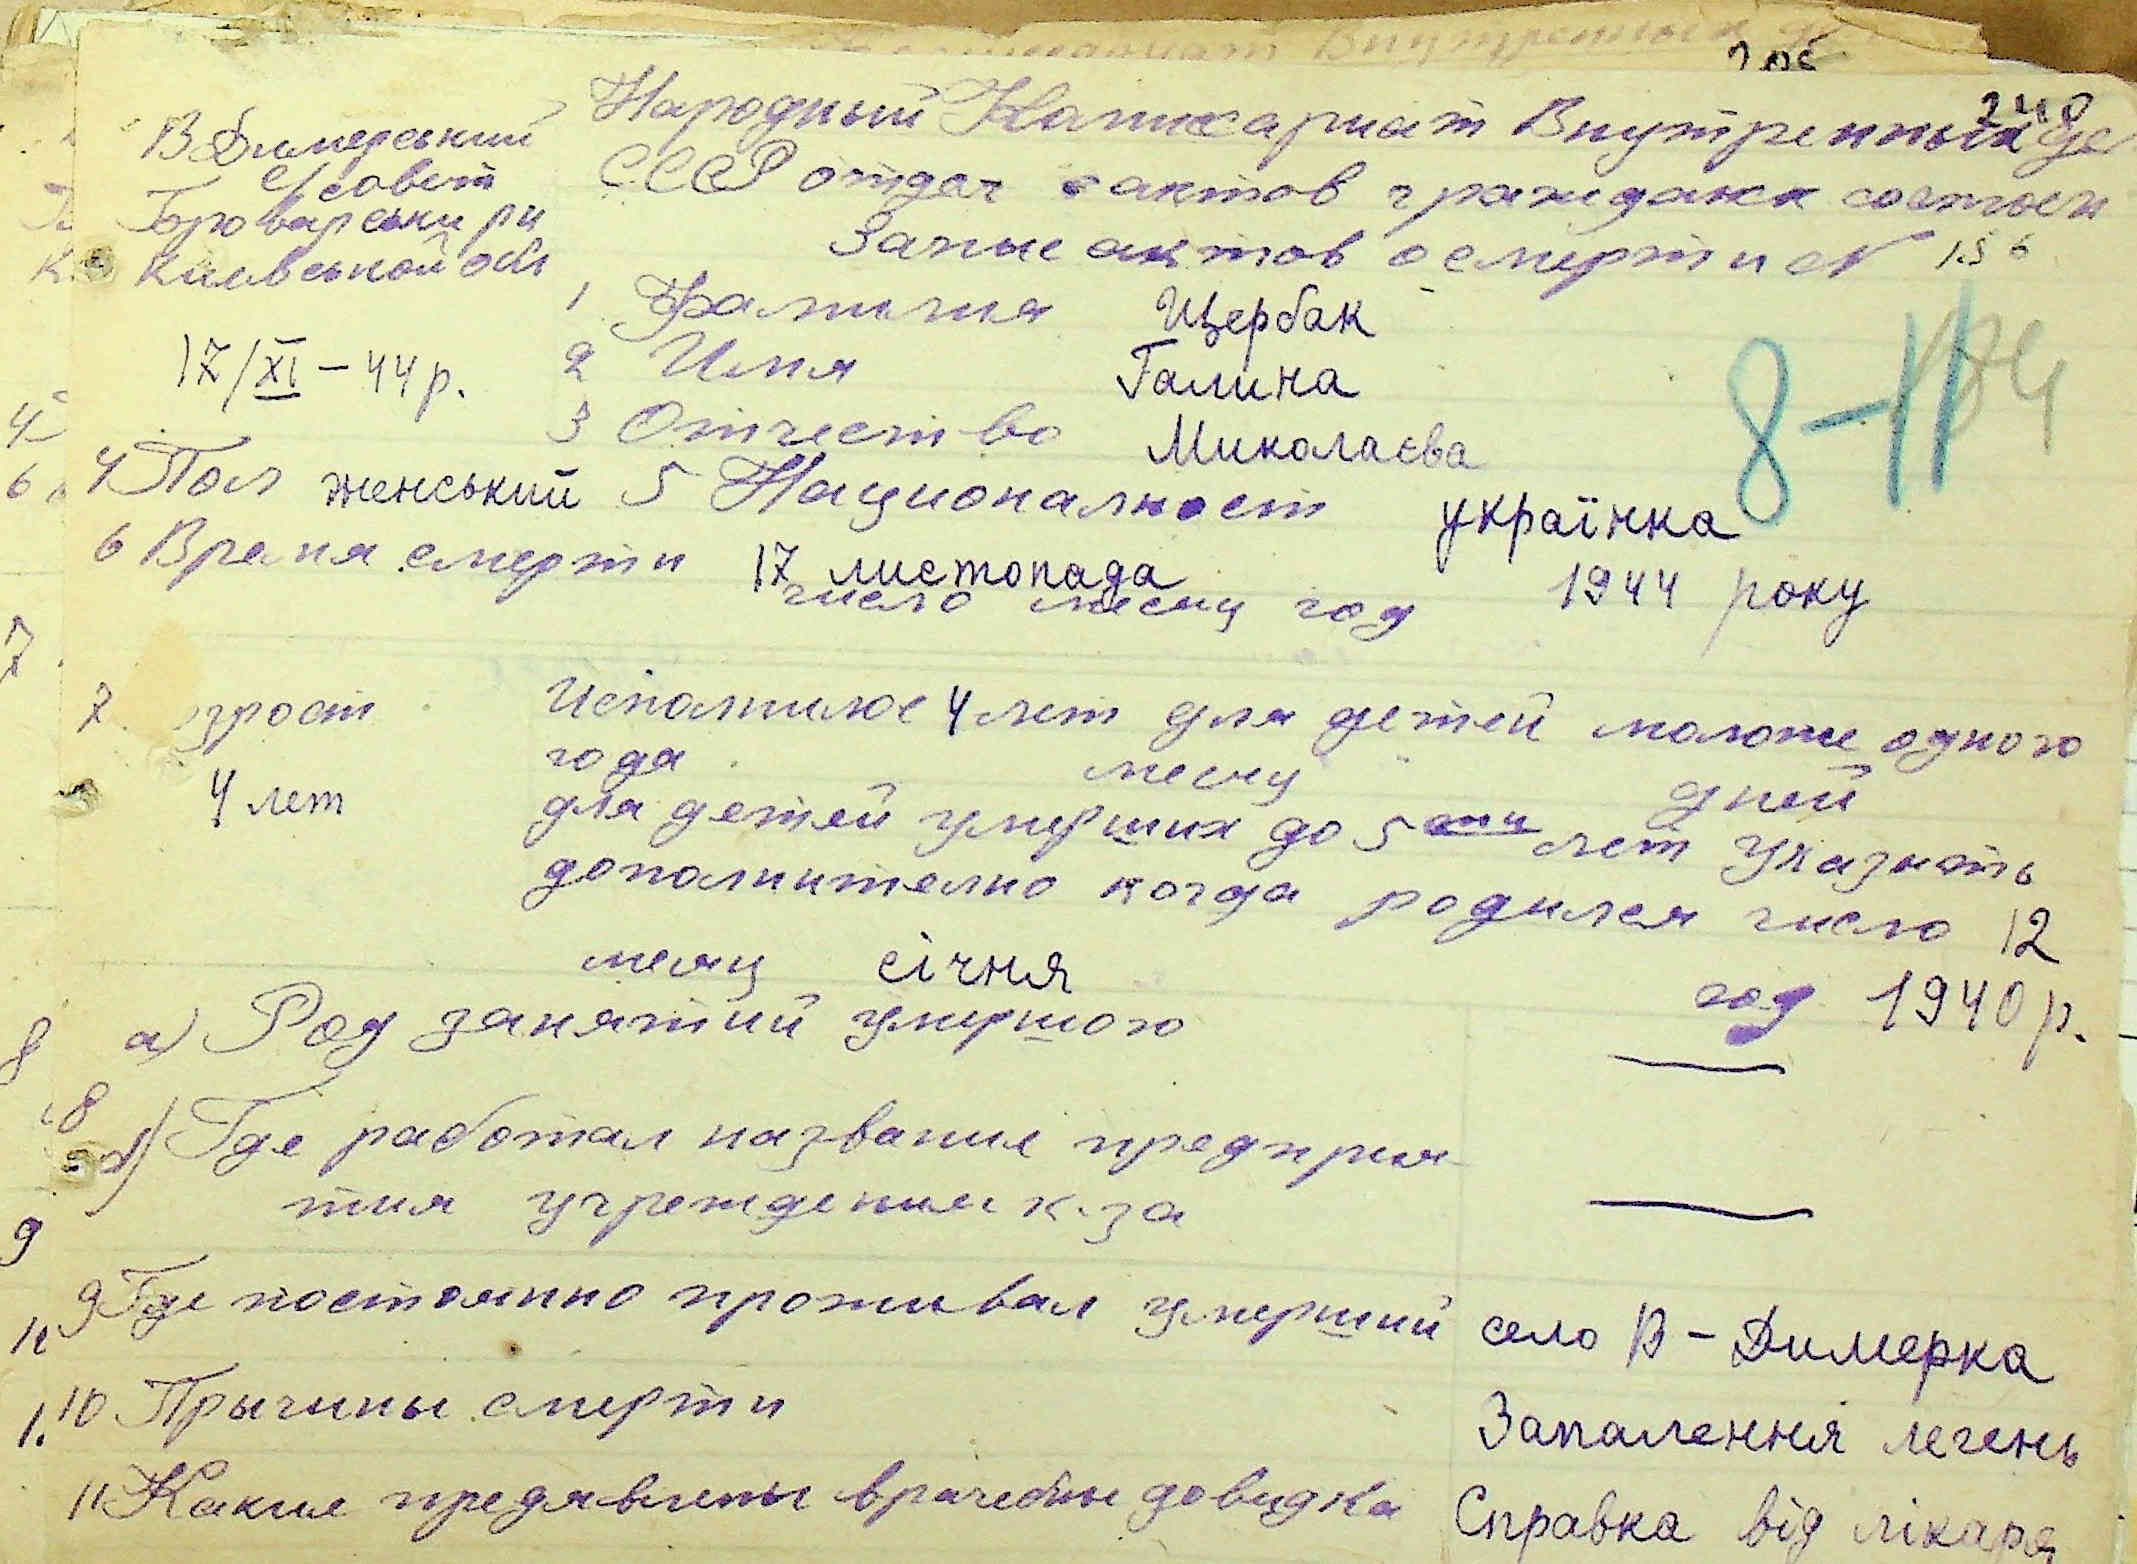 240
В Димерський
с/совет
Броварськи рн
Киевськой обл
17/XI – 44 р.
Народный Комисариат Внутренных Де
СССР отдел актов гражданск состоян
Запис актов о смерти № 156
1 Фамилия Щербак
2 Имя Галина
3 Отчество Миколаєва
8-11
4 Пол женський 5 Националност українка
6 Время смерти 17 листопада 1944 року
число месяц год
7 зрост Исполнилос 4 лет для детей моложе одного
года месяц дней
4 лет
для детей умерших до 5 ти лет указать
дополнително когда родился число 12
месяц січня год 1940 р.
8 а) Род занятий умершого —
Где работал название предприя-
тия учреждения к-за —
9 Где постоянно проживал умерший село В – Димерка
10 Причины смерти Запалення легень
11 Какие предявлены врачебны довидка Справка від лікаря